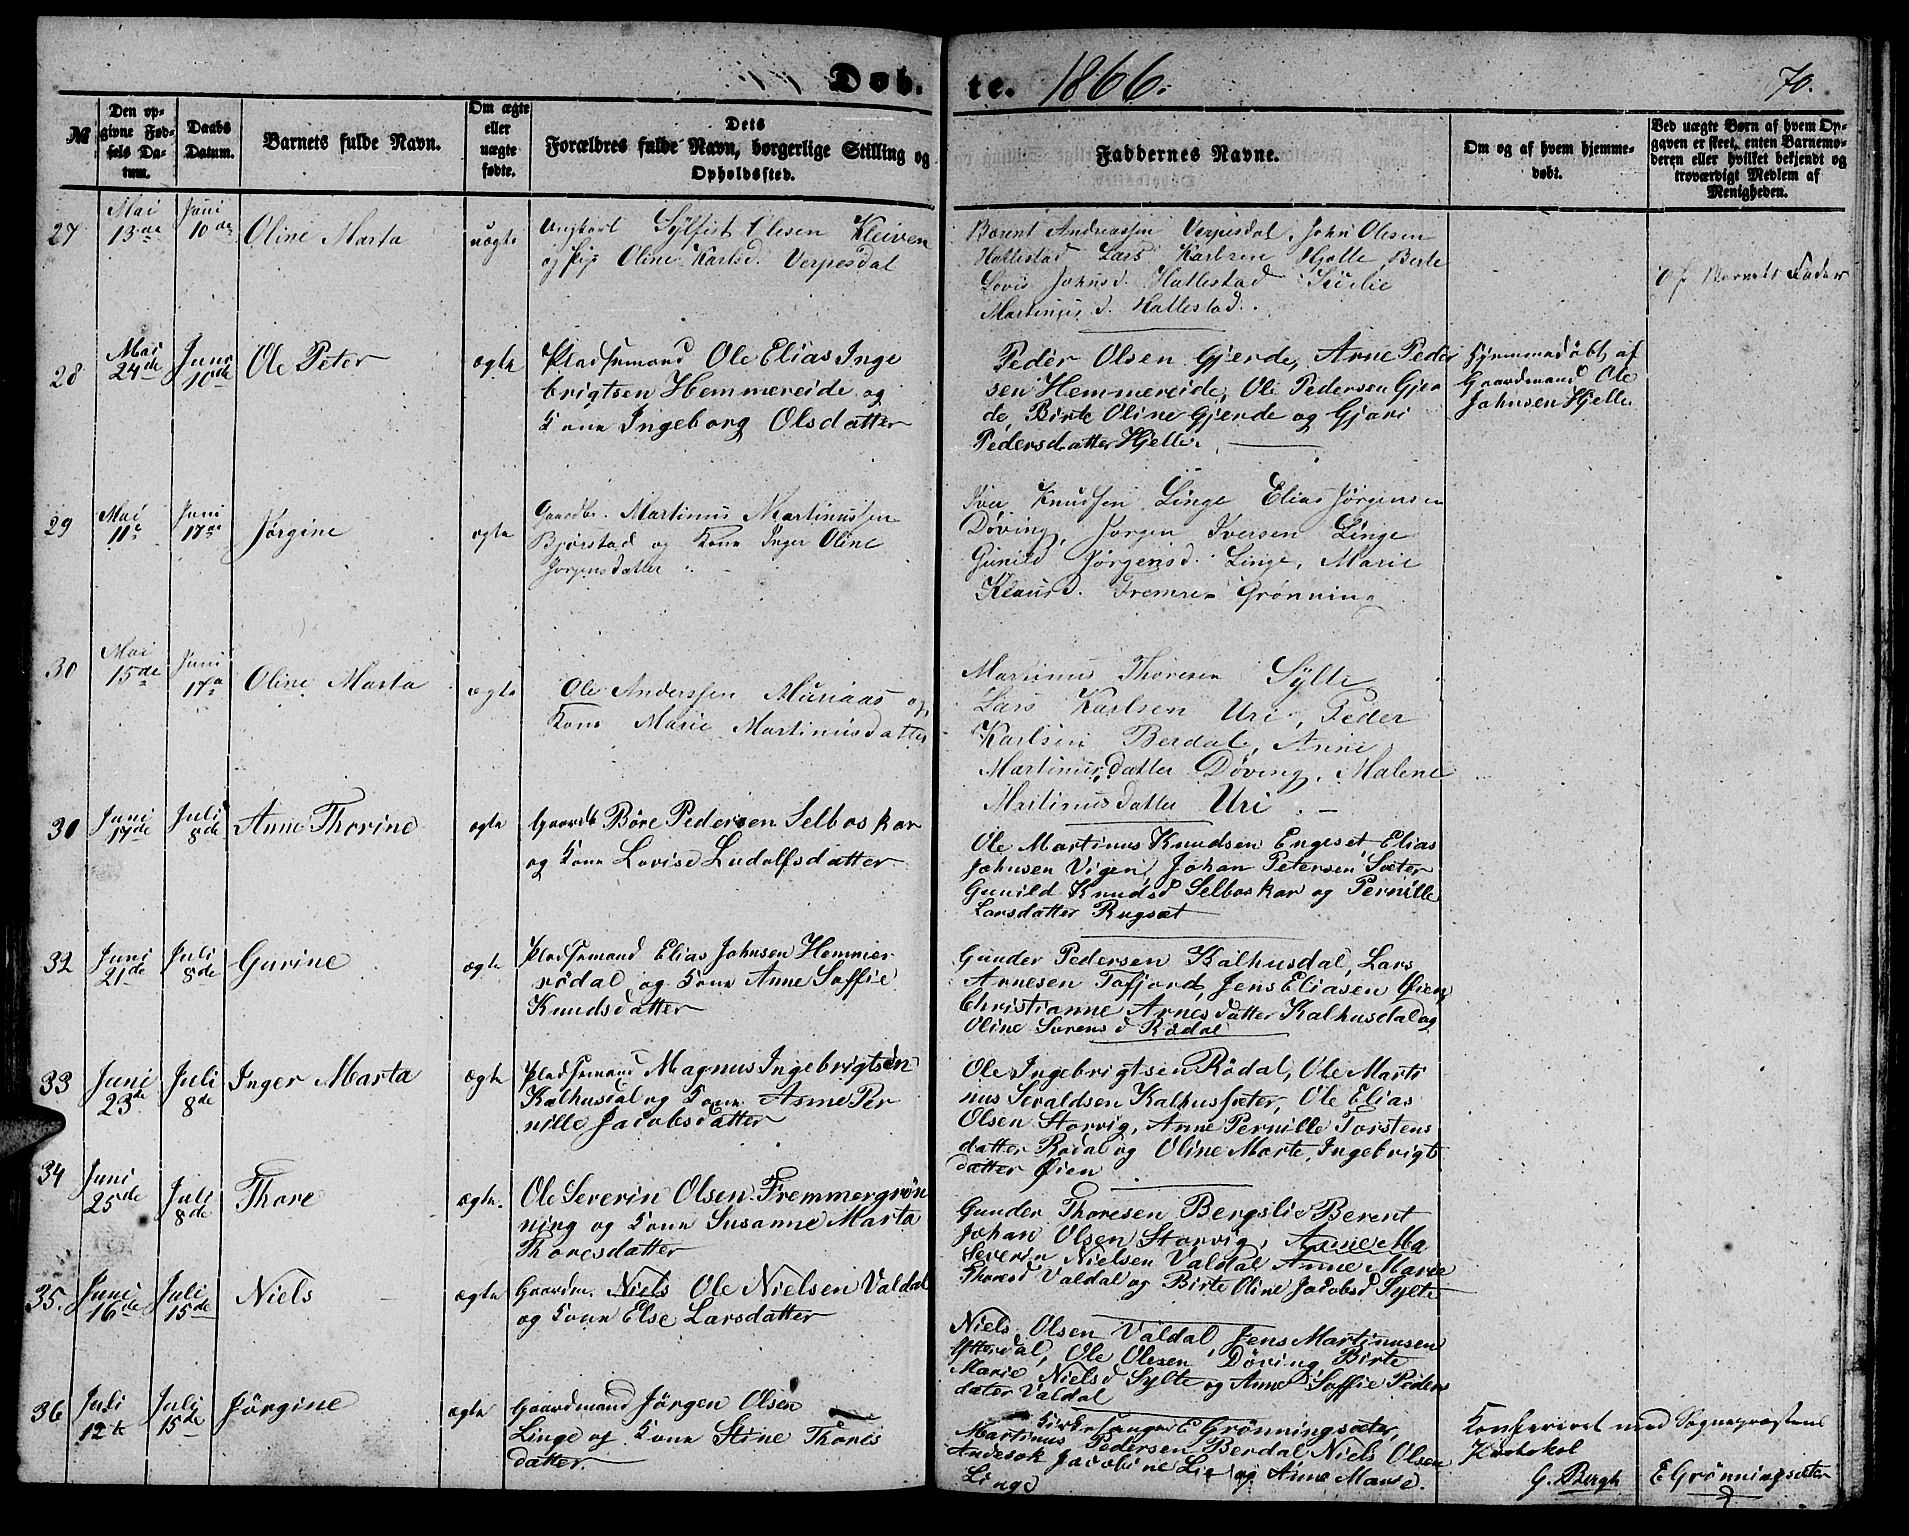 Døb.
te. 1866.
70.
№
Den opgivne Fødsels Datum.
Daabs Datum.
Barnets fulde Navn.
Om ægte eller uægte fødte.
Dets Forældres fulde Navn, borgerlige Stilling og Opholdssted.
Faddernes Navne.
Om og af hvem hjemmedøbt.
Ved uægte Børn af hvem Opgaven er skeet, enten Barnemoderen eller hvilket bekjendt og troværdigt Medlem af Menigheden.
27 Mai 13de Juni 10de Oline Marta uægte
Ungkarl Sylfest Olesen Kleiven
og Pige Oline Karlsd. Verpesdal
Berent Andreassen Verpesdal, John Olesen
Hallestad Lars Karlsen Hjelle Berte
Lovis Johnsd. Hallestad
Martinusd. Hallestad.
Af Barnets Fader
28 Mai 24de Juni 10de Ole Peter ægte
Pladsemand Ole Elias Inge
brigtsen Hemmereide og
Kone Ingeborg Olsdatter
Peder Olsen Gjerde, Arne Peder
sen Hemmereide, Ole Pedersen Gjer
de, Birte Oline Gjerde og Gjøri
Pedersdatter Hjelle.
Hjemmedøbt af
Gaardmand Ole
Johnsen Hjelle
29 Mai 11te Juni 17de Jørgine ægte
Gaardbr. Martinus Martinussen
Bjørstad og Kone Inger Oline
Jørgensdatter
Iver Knudsen Linge Elias Jørgensen
Døving, Jørgen Iversen Linge
Gunild Jørgensd. Linge, Marie
Klausd. Fremre Grønning
30 Mai 15de Juni 17de Oline Marta ægte
Ole Anderssen Muriaas og
Kone Marie Martinusdatter
Martinus Thoresen Sylte
Lars Karlsen Uri, Peder
Karlsen Berdal, Anne
Martinusdatter Døving, Malene
Martinusdatter Uri.
30 Juni 17de Juli 8de Anne Thorine ægte
Gaardb Børe Pedersen Selboskar
og Kone Lovise Ludolfsdatter
Ole Martinus Knudsen Engeset Elias
Johnsen Vigen, Johan Petersen Sæter
Gunild Knudsd Selboskar og Pernille
Larsdatter Rugsæt
32 Juni 21de Juli 8de Gurine ægte
Pladsemand Elias Johnsen Hemmer
rödal og Kone Anne Soffie
Knudsdatter
Gunder Pedersen Kalhusdal, Lars
Arnesen Tafjord, Jens Eliasen Øien,
Christianne Arnesdatter Kalhusdal og
Oline Sørensd Rødal
33 Juni 23de Juli 8de Inger Marta ægte
Pladsemand Magnus Ingebrigtsen
Kalhusdal og Kone Anne Per
nille Jacobsdatter
Ole Ingebrigtsen Rødal, Ole Marti
nus Sevaldsen Kalhussæter, Ole Elias
Olsen Storvig, Anne Pernille Torstens
datter Rødal og Oline Marte, Ingebrigt
datter Øien
34 Juni 25de Juli 8de Thore ægte.
Ole Severin Olsen Fremmergrøn
ning og Kone Susanne Marta
Thoresdatter
Gunder Thoresen Bergslie Berent
Johan Olsen Storvig, Anne Ma
Severin Nielsen Valdal Anne Marie
Thoresd Valdal og Birte Oline Jacobsd Sylte
35. Juni 16de Juli 15de Niels ægte
Gaardm. Niels Ole Nielsen Valdal
og Kone Else Larsdatter
Niels Olsen Valdal, Jens Martinusen
Ole Olesen Døving Birte
Marie Nielsd Sylte og Anne Soffie Peders
datter Valdal
36 Juli 12te Juli 15de Jørgine ægte
Gaardmand Jørgen Olsen
Linge og Kone Stine Thores
datter.
Kirkesanger E Grønningsæter,
Martinus Pedersen Berdal, Niels Olsen
Andesok Jacobine Lie og Anne Mansd.
Linge
Konfereret med Sognepræstens
Protokol
G. Bergh E Grønningsæter